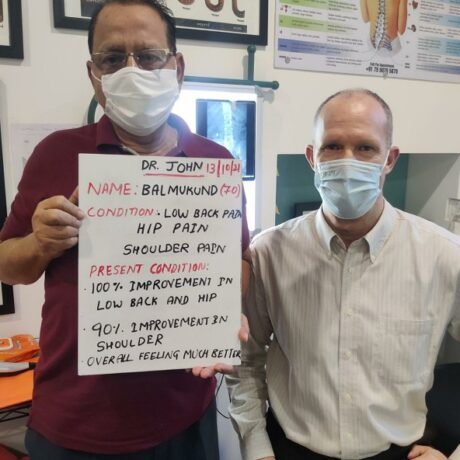 DR. JOHN 13/10/21
NAME: BALMUKUND (70)
CONDITION - LOW BACK PAIN
HIP PAIN
SHOULDER PAIN
PRESENT CONDITION:
• 100% IMPROVEMENT IN
LOW BACK AND HIP
• 90% IMPROVEMENT IN
SHOULDER
• OVERALL FEELING MUCH BETTER